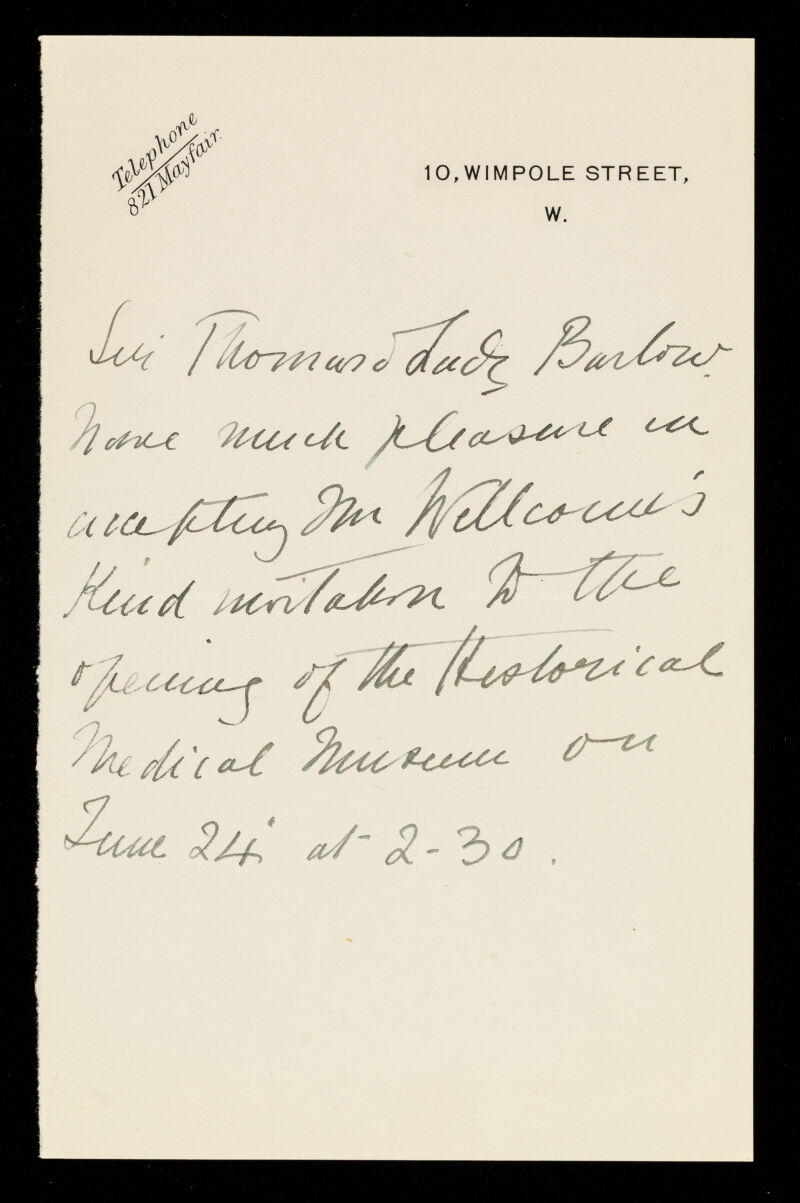 Telephone
821 Mayfair.
10, WIMPOLE STREET,
W.
Sir Thomas & Lady Barlow
have much pleasure in
accepting Mr Wellcome's
Kind invitation to the
opening of the Historical
Medical Museum on
June 24 at 2-30.